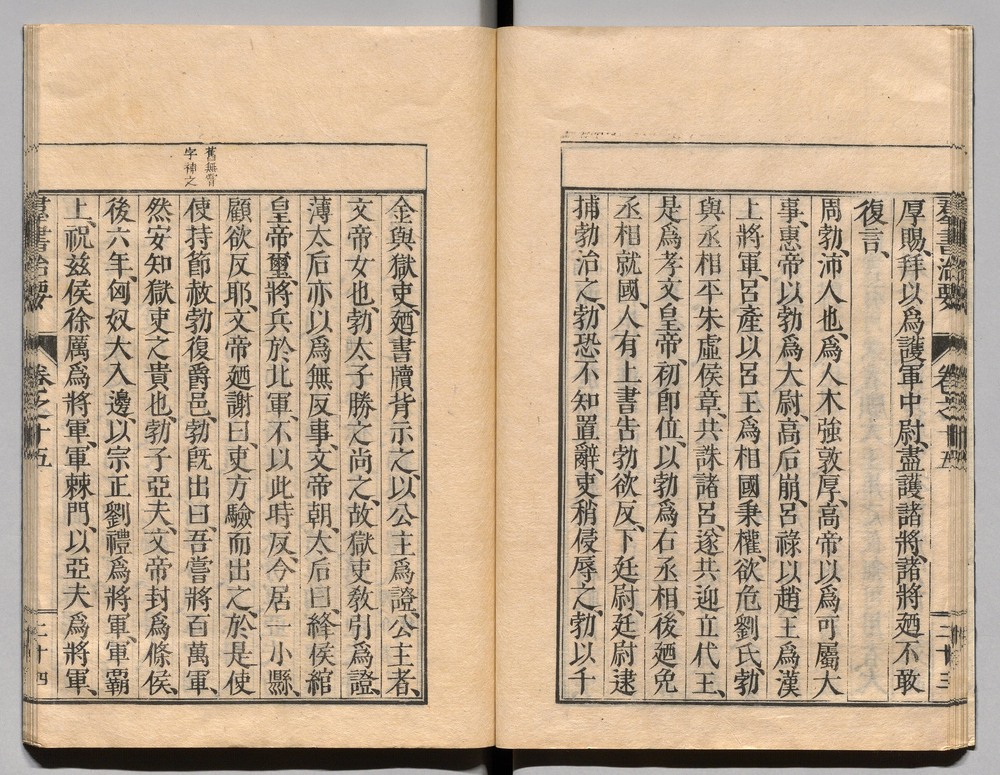 羣書治要 卷之十五 二十三
厚賜、拜以爲護軍中尉、盡護諸將、諸將廼不敢
復言、
周勃、沛人也、爲人木強敦厚、高帝以爲可屬大
事、惠帝以勃爲大尉、高后崩、呂祿以趙王爲漢
上將軍、呂產以呂王爲相國秉權、欲危劉氏、勃
與丞相平朱虛侯章、共誅諸呂、遂共迎立代王、
是爲孝文皇帝、初卽位、以勃爲右丞相、後廼免
丞相就國、人有上書告勃欲反、下廷尉、廷尉逮
捕勃治之、勃恐不知置辭、吏稍侵辱之、勃以千
舊無背
字補之
金與獄吏、廼書牘背示之、以公主爲證、公主者、
文帝女也、勃太子勝之尚之、故獄吏敎引爲證、
薄太后亦以爲無反事、文帝朝、太后曰、絳侯綰
皇帝璽、將兵於北軍、不以此時反、今居一小縣、
顧欲反耶、文帝廼謝曰、吏方驗而出之、於是使
使持節赦勃復爵邑、勃旣出曰、吾嘗將百萬軍、
然安知獄吏之貴也、勃子亞夫、文帝封爲條侯、
後六年、匈奴大入邊、以宗正劉禮爲將軍、軍霸
上、祝兹侯徐厲爲將軍、軍棘門、以亞夫爲將軍、
羣書治要 卷之十五 二十四